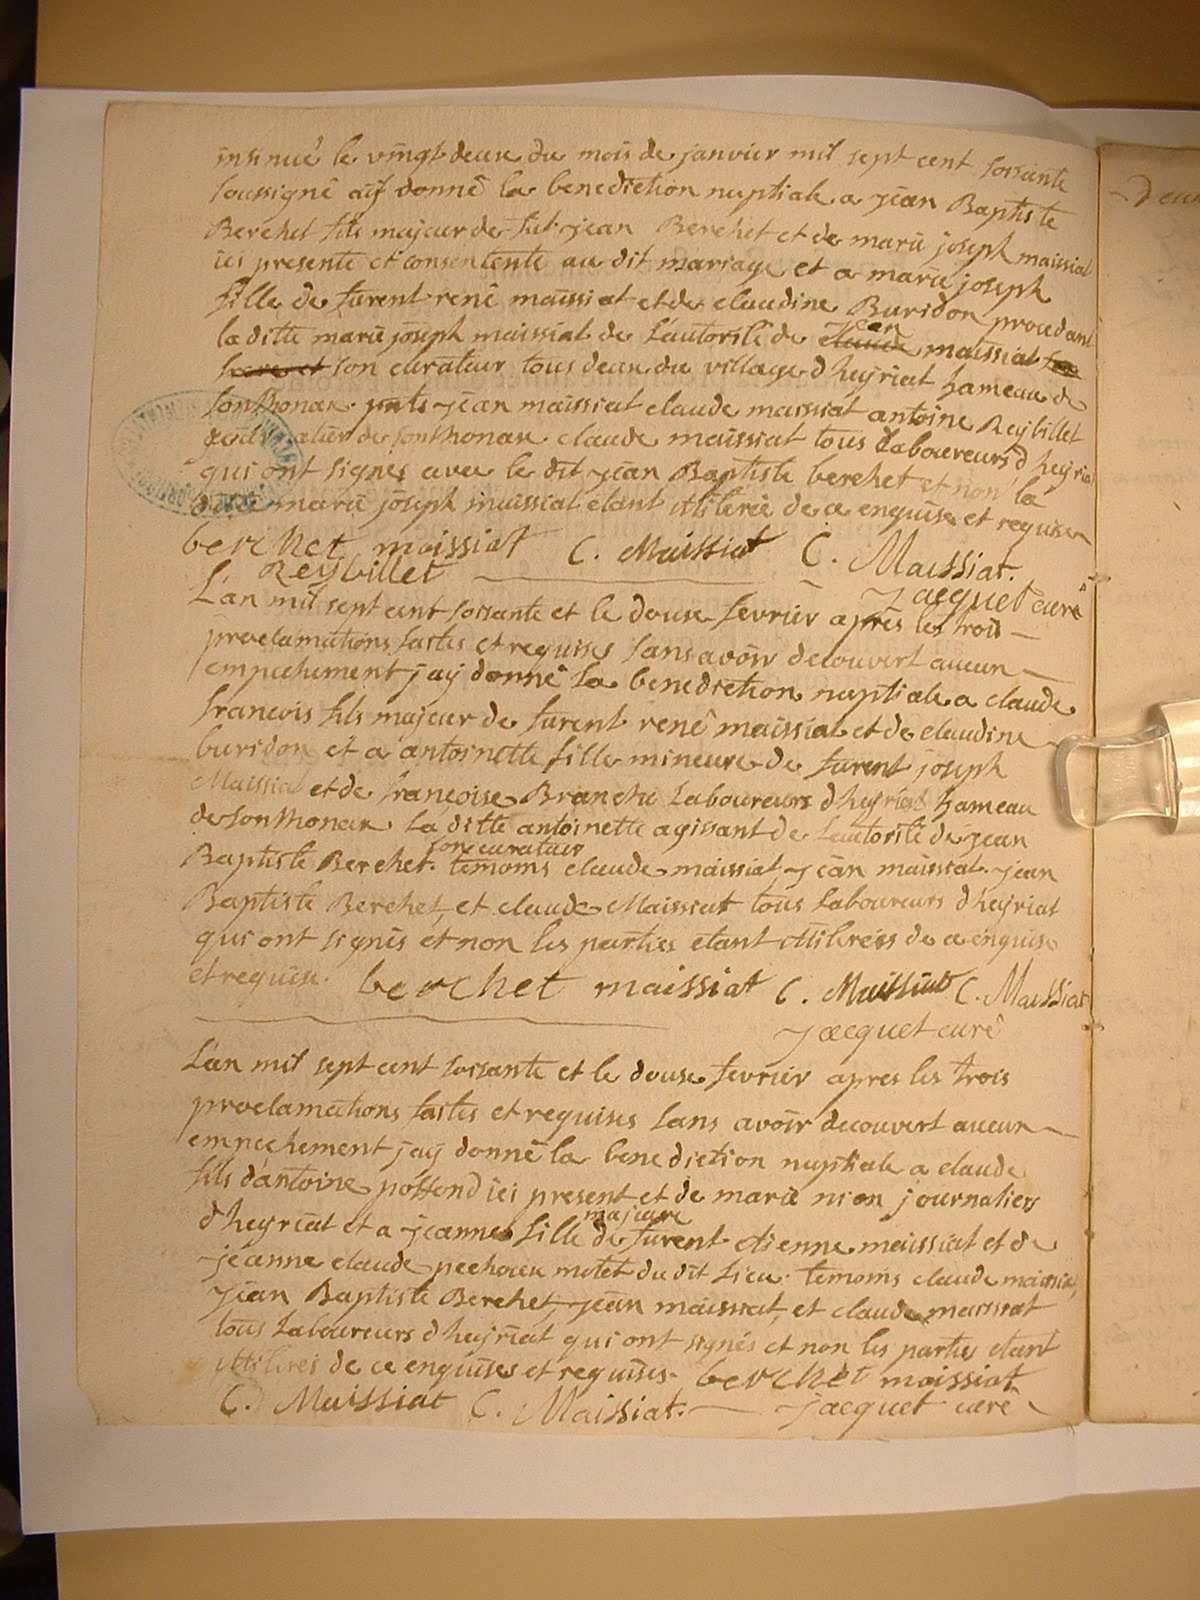 insinué le vingt deux du mois de janvier mil sept cent sossante
soussigné aÿ donné la benediction nuptiale a jean Baptiste
Berchet fils majeur de fut jean Berchet et de marie joseph maissiat
ici presente et consentente au dit mariage et a marie joseph
fille de furent rené maissiat et de claudine Buridon procedant
la ditte marie joseph maissiat de l'autorité de claude jean maissiat
son curateur tous deux du village d heyriat hameau de
sonthonax pnts jean maissiat claude maissiat antoine Reybillet
de sonthonax claude maissiat tous laboureurs d heyriat
qui ont signés avec le dit jean Baptiste berchet et non la
ditte marie joseph maissiat etant illiterée de ce enquise et requise
berchet maissiat C. Maissiat C. Maissiat.
Reybillet jacquet curé
L'an mil sept cent sossante et le douse fevrier après les trois
proclamations faites et requises sans avoir decouvert aucun
empechement jaÿ donné la benediction nuptiale a claude
francois fils majeur de furent rené maissiat et de claudine
buridon et a antoinette fille mineure de furent joseph
Maissiat et de françoise Branchu Laboureurs d heyriat hameau
de sonthonax la ditte antoinette agissant de l'autorité de jean
son curateur
Baptiste Berchet. temoins claude maissiat jean maissiat jean
Baptiste Berchet et claude Maissiat tous laboureurs d heyriat
qui ont signés et non les parties etant illiterées de ce enquise
et requise. berchet maissiat C. Maissiat C. Maissiat
jacquet curé
L'an mil sept cent sossante et le douse fevrier apres les trois
proclamations faites et requises sans avoir decouvert aucun
empechement jaÿ donné la benediction nuptiale a claude
fils d'antoine poffond ici present et de marie nion journaliers
majeure
d heyriat et a jeanne fille de furent etienne maissiat et de
jeanne claude pechoux motet du dit lieu. temoins claude maissiat,
jean Baptiste Berchet, jean maissiat, et claude maissiat
tous laboureurs d heyriat qui ont signés et non les partie etant
illiterés de ce enquises et requises. berchet maissiat
C. Maissiat C. Maissiat. jacquet curé